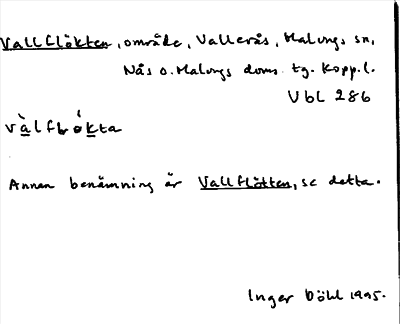 Vallflökten, område, Vallerås, Malungs sn,
Nås o. Malungs doms. tg. Kopp.l.
Vbl 286
Annan benämning är Vallflötten, se detta.
Inger Döhl 1995.